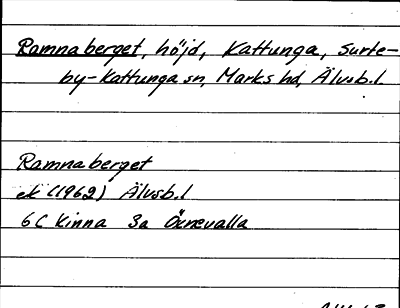 Ramnaberget, höjd, Kattunga, Surte-
by-Kattunga sn, Marks hd, Älvsb.l.
Ramnaberget
ek (1962) Älvsb.l
6C Kinna 3a Öxnevalla